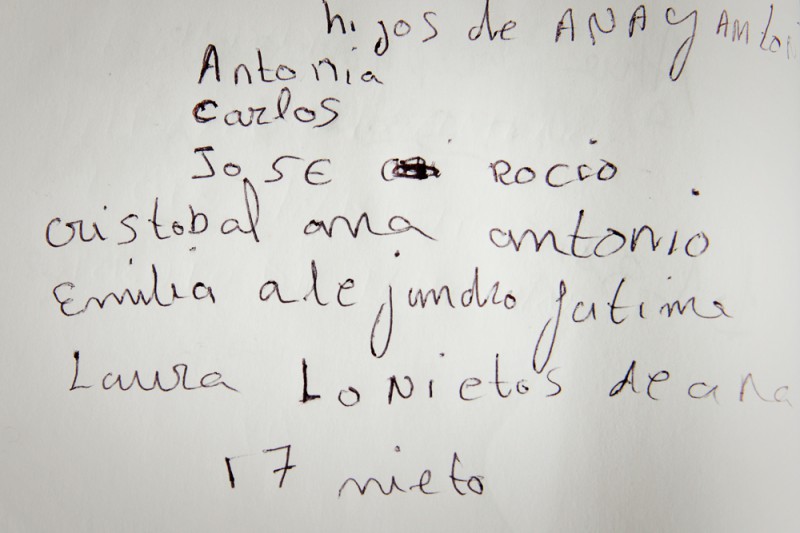 hijos de ANA y Antoi
Antonia
carlos
JoSE Rocio
cristobal ana antonio
Emilia alejandro fatima
Laura Lo Nietos de ana
17 nieto